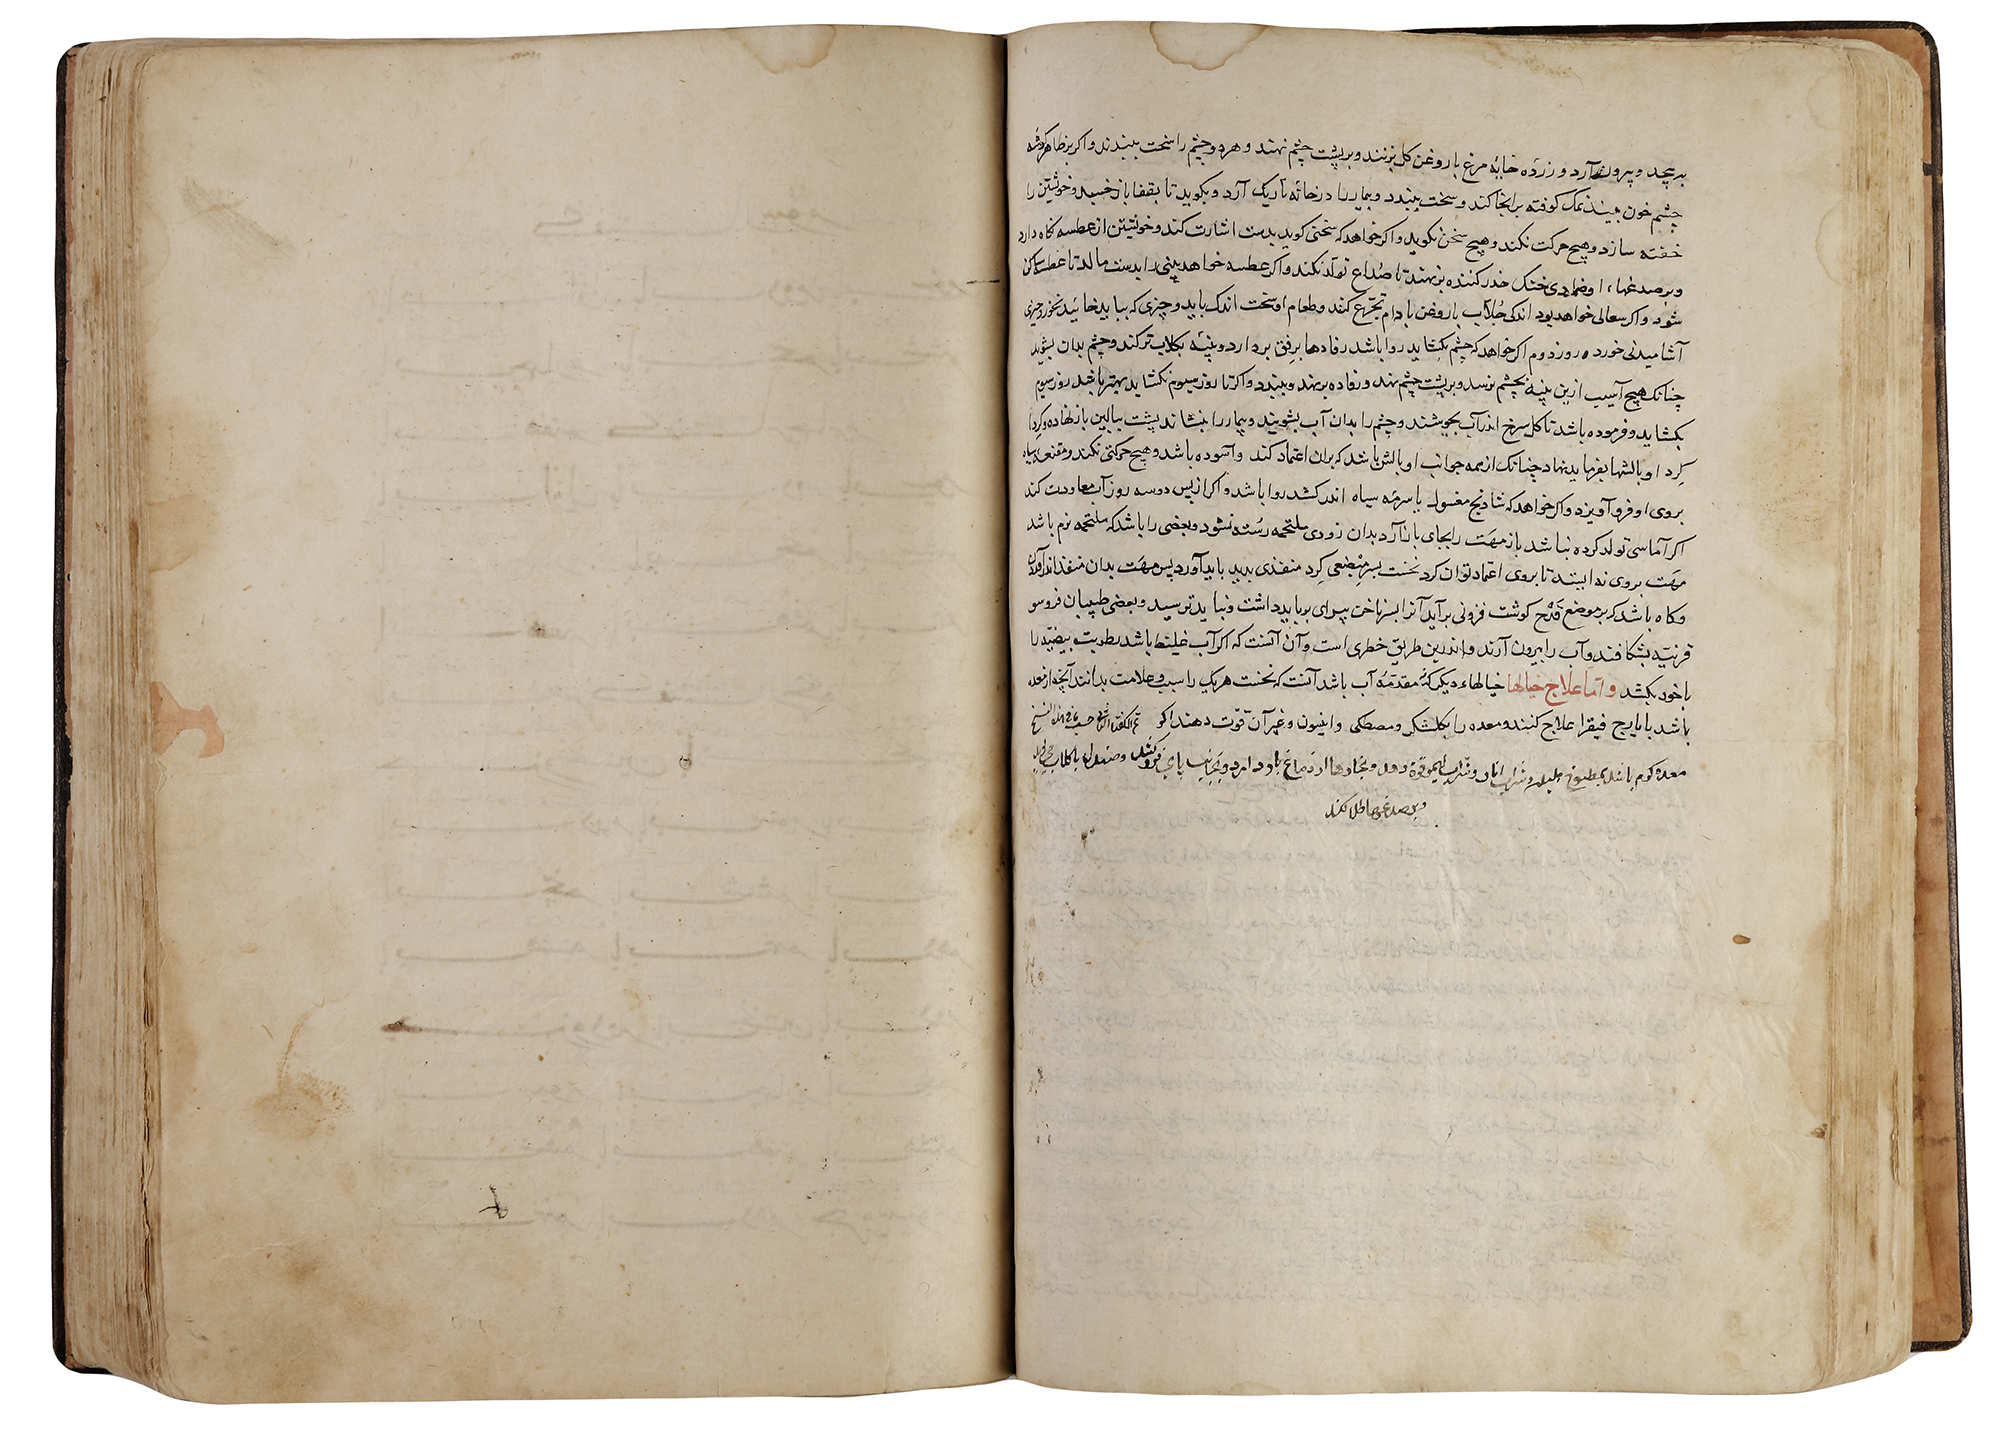 بدبیچد و بیرون آرد و زرده خایهٔ مرغ با روغن کل بزنند و بر پشت چشم نهند و هر دو چشم را سخت ببندند و اکر بر ظاهر
چشم خون بیند نمک کوفته برانجا کند و سخت ببندد و بیمار را در خانه تاریک آرد و بکوید تا بقفا باز خسبد و خویشتن را
خفته سازد و هیچ حرکت نکند و هیچ سخن نکوید و اکر خواهد که سخنی کوید بدست اشارت کند و خویشتن از عطسه نکاه دارد
و بر صدغهاء او ضمادی خنک خدر کننده برنهند تا صداع تولد نکند و اکر عطسه خواهد بینی را بدست مالد تا عطسه ساکن
شود و اکر سعالی خواهد بود اندکی جلاب با روغن بادام تجرع کند و طعام او سخت اندک باید و چیزی که بباید خائید نخورد چیزی
آشامیدنی خورد روز دوم اکر خواهد که چشم بکشاید روا باشد رفادها برفق بردارد و پنبه بکلاب تر کند و چشم بدان بشوید
چنانک هیچ آسیب ازین پنبه بچشم نرسد و بر پشت چشم نهد و رفاده برنهد و ببندد و اکر تا روز سیوم نکشاید بهتر باشد روز سیوم
بکشاید و فرموده باشد تا کل سرخ اندر آب بجوشند و چشم را بدان آب بشویند و بیمار را بنشاند پشت ببالین باز نهاده و کرد
کرد او بالشها بفرماید نهاد چنانک از همه جوانب او بالش باشد که بران اعتماد کند و آسوده باشد و هیچ حرکتی نکند و مقنعه سیاه
بروی او فرو آویزد و اکر خواهد که شادنج مغسول با سرمه سیاه اندر کشد روا باشد و اکر از پس دو سه روز آب معاودت کند
اکر آماسی تولد کرده نباشد باز مهت را بجای باز آرد بدان زودی ملتحمه رسته نشود و بعضی را باشد که ملتحمه نرم باشد
مهت بروی نه ایستد تا بروی اعتماد توان کرد نخست بسر مبضعی کرد منفذی پدید باید آورد پس مهت بدان منفذ اندر آوردن
و کاه باشد که بر موضع قدح کوشت فزونی برآید آنرا بسر ناخن پیرای بوباید داشت و نباید ترسید و بعضی طبیبان فروسو
قرنیه بشکافند و آب را بیرون آرند و اندرین طریق خطری است و آن آنست که اکر آب غلیظ باشد رطوبت بیضیه را
با خود بکشد و اما علاج خیالها خیالهاء دیکر که نه مقدمهٔ آب باشد آنست که نخست هر یک را سبب و علامت بدانند آنچه از معده
باشد بایارج فیقرا علاج کنند و معده را بکلشکر و مصطکی و انیسون و غیر آن قوت دهند اکر
معده کرم باشد بمطبوخ هلیله و شراب انار و شراب لیمو قوة دهد و بخارها از دماغ باز دارد و صندل با کلاب
و بر صدغها طلا کند